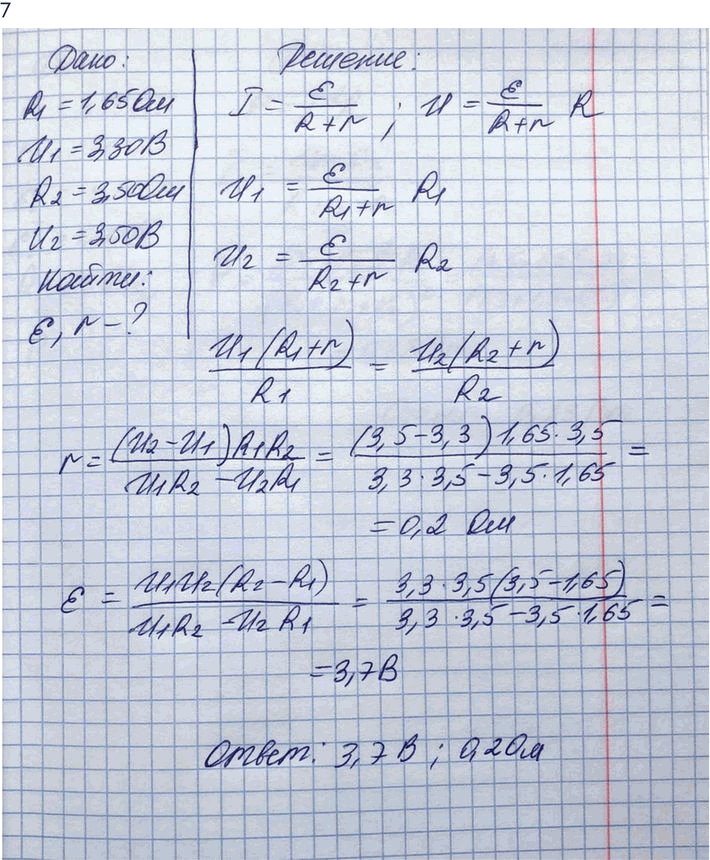 7
Дано:
R1 = 1,65 Ом
U1 = 3,30 В
R2 = 3,50 Ом
U2 = 3,50 В
Найти:
ε, r - ?
Решение:
I = ε / (R + r) ; U = ε / (R + r) R
U1 = ε / (R1 + r) R1
U2 = ε / (R2 + r) R2
U1 (R1 + r) / R1 = U2 (R2 + r) / R2
r = (U2 - U1) R1 R2 / (U1R2 - U2R1) = (3,5 - 3,3) 1,65 · 3,5 / (3,3 · 3,5 - 3,5 · 1,65) =
= 0,2 Ом
ε = U1U2 (R2 - R1) / (U1R2 - U2R1) = 3,3 · 3,5 (3,5 - 1,65) / (3,3 · 3,5 - 3,5 · 1,65) =
= 3,7 В
Ответ: 3,7 В ; 0,2 Ом